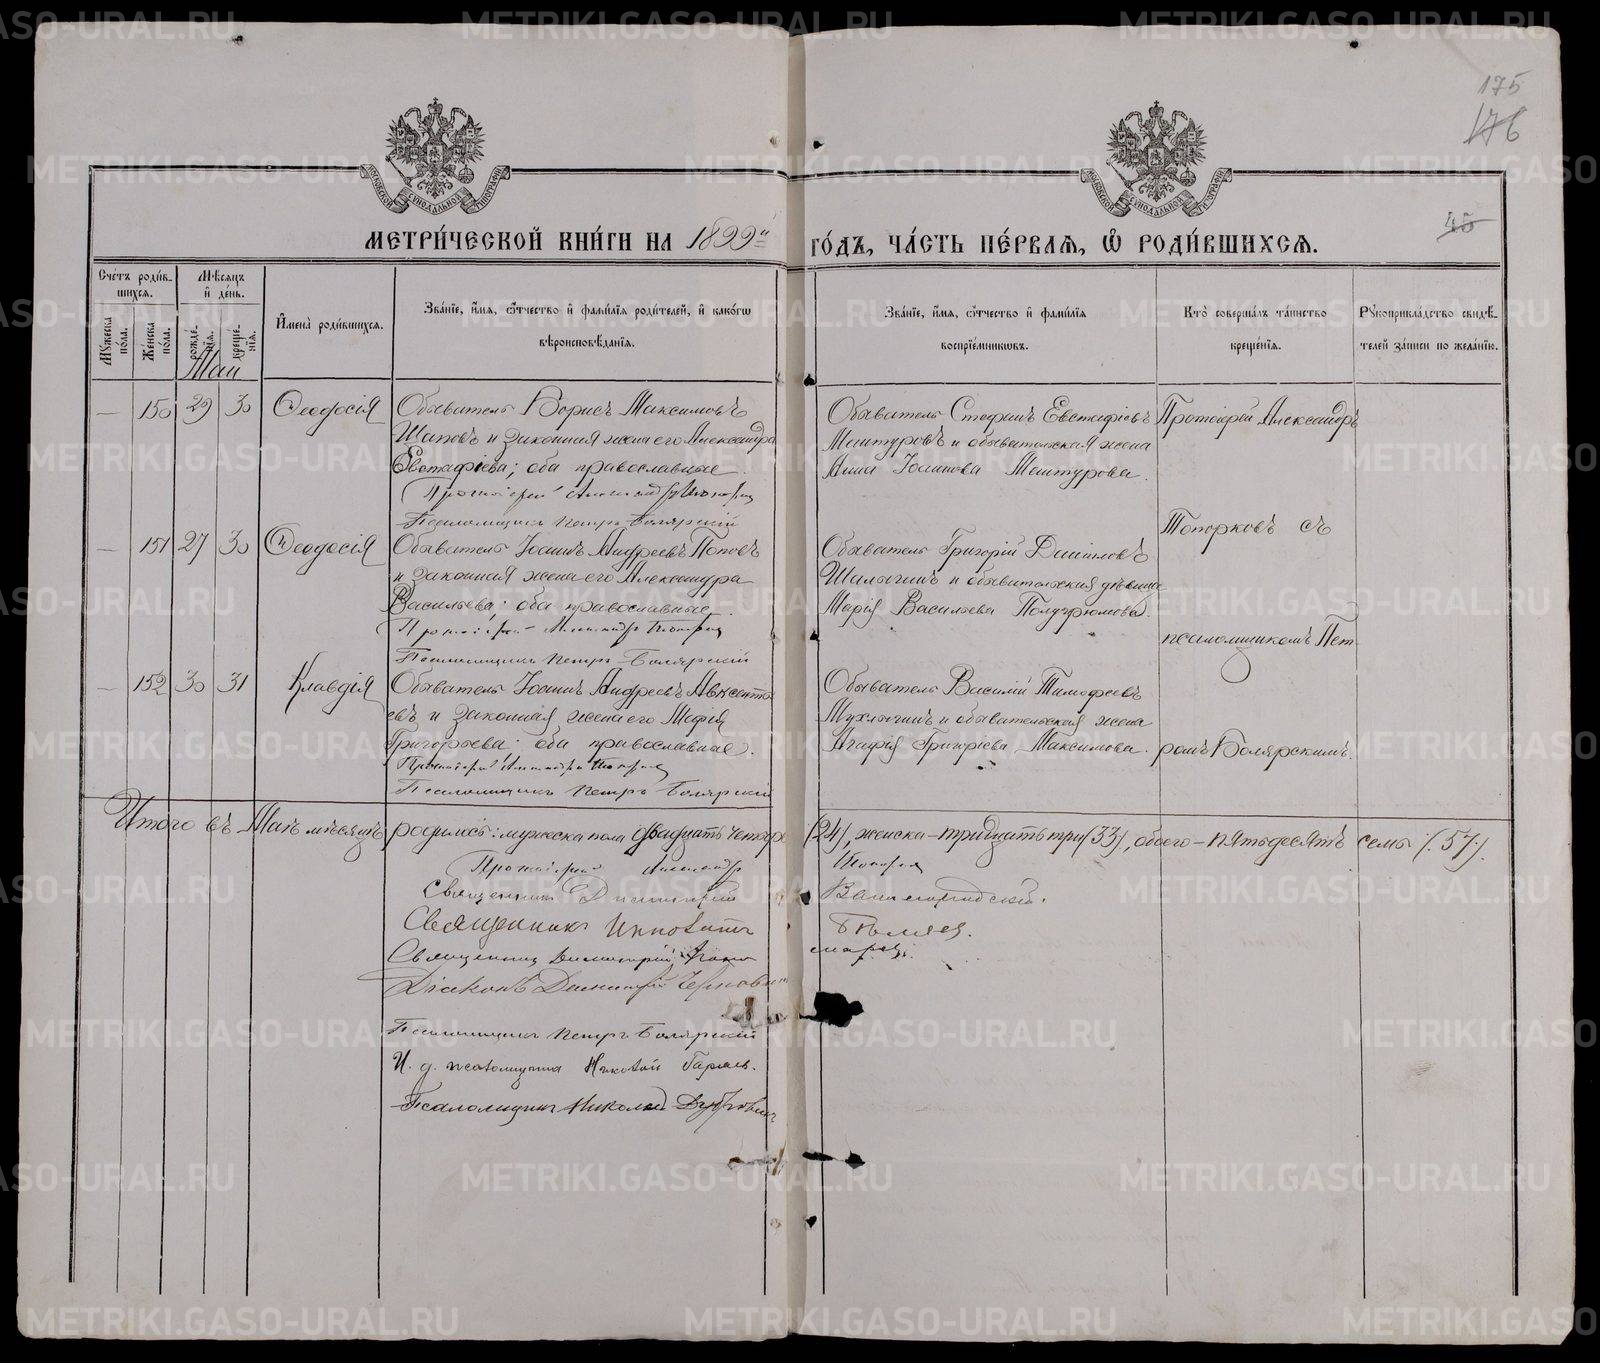 175
176
45
МЕТРИ́ЧЕСКОЙ КНИ́ГИ НА 1899й ГО́ДЪ, ЧА́СТЬ ПЕ́РВАЯ, Ѡ҆ РОДИ́ВШИХСѦ.
Сче́тъ роди́в-
шихсѧ.
Мꙋ́жеска по́ла.
Же́нска по́ла.
Мѣ́сѧцъ
и҆ де́нь.
рожде́-
нїѧ.
креще́-
нїѧ.
Май
И҆мена̀ роди́вшихсѧ.
Зва́нїе, и҆́мѧ, ѻ҆́тчество и҆ фамѝлїѧ роди́телей, и҆ како́гѡ
вѣроисповѣ́данїѧ.
Зва́нїе, и҆́мѧ, ѻ҆́тчество и҆ фамѝлїѧ
воспрїе́мникѡвъ.
Кто̀ соверша́лъ та́инство
креще́нїѧ.
Рꙋкоприкла́дство свидѣ́-
телей за́писи по жела́нїю.
— 150 29 30 Ѳеодосія
Обыватель Борисъ Максимовъ
Шаповъ и законная жена его Александра
Евстафіева; оба православные.
Протоіерей Александръ Топорковъ
Псаломщикъ Петръ Болярскій
Обыватель Стефанъ Евстафіевъ
Маштуровъ и обывательская жена
Анна Іоаннова Маштурова.
Протоіерей Александръ
Топорковъ съ
— 151 27 30 Ѳеодосія
Обыватель Іоаннъ Андреевъ Поповъ
и законная жена его Александра
Васильева; оба православные.
Протоіерей Александръ Топорковъ
Псаломщикъ Петръ Болярскій
Обыватель Григорій Даниловъ
Шалыгинъ и обывательская дѣвица
Марія Васильева
псаломщикомъ Пет-
— 152 30 31 Клавдія
Обыватель Іоаннъ Андреевъ Авксентъ-
евъ и законная жена его Марія
Григорьева; оба православные.
Протоіерей Александръ Топорковъ
Псаломщикъ Петръ Болярскій
Обыватель Василій Тимофеевъ
Мухлынинъ и обывательская жена
Агафія Григоріева Максимова.
ромъ Болярскимъ.
Итого въ Маѣ мѣсяцѣ родилось: мужеска пола двадцать четыре (24), женска — тридцать три (33), обоего — пятьдесятъ семь (57).
Протоіерей Александръ Топорковъ
Священникъ Димитрій
Священникъ Иннокентій Бѣляев.
Священникъ Димитрій
Діаконъ Димитрій
Псаломщикъ Петръ Болярскій
И. д. псаломщика Николай
Псаломщикъ Николай